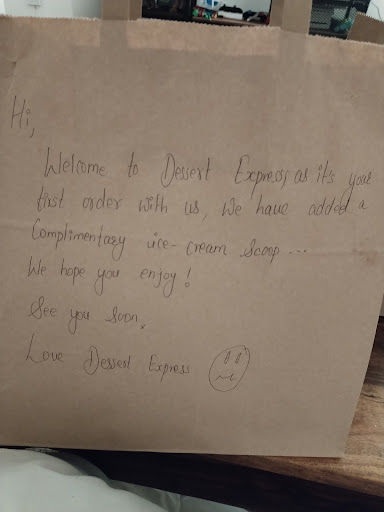 Hi,
Welcome to Dessert Express, as it's your
first order with us, We have added a
Complimentary ice-cream Scoop...
We hope you enjoy!
See you Soon,
Love Dessert Express